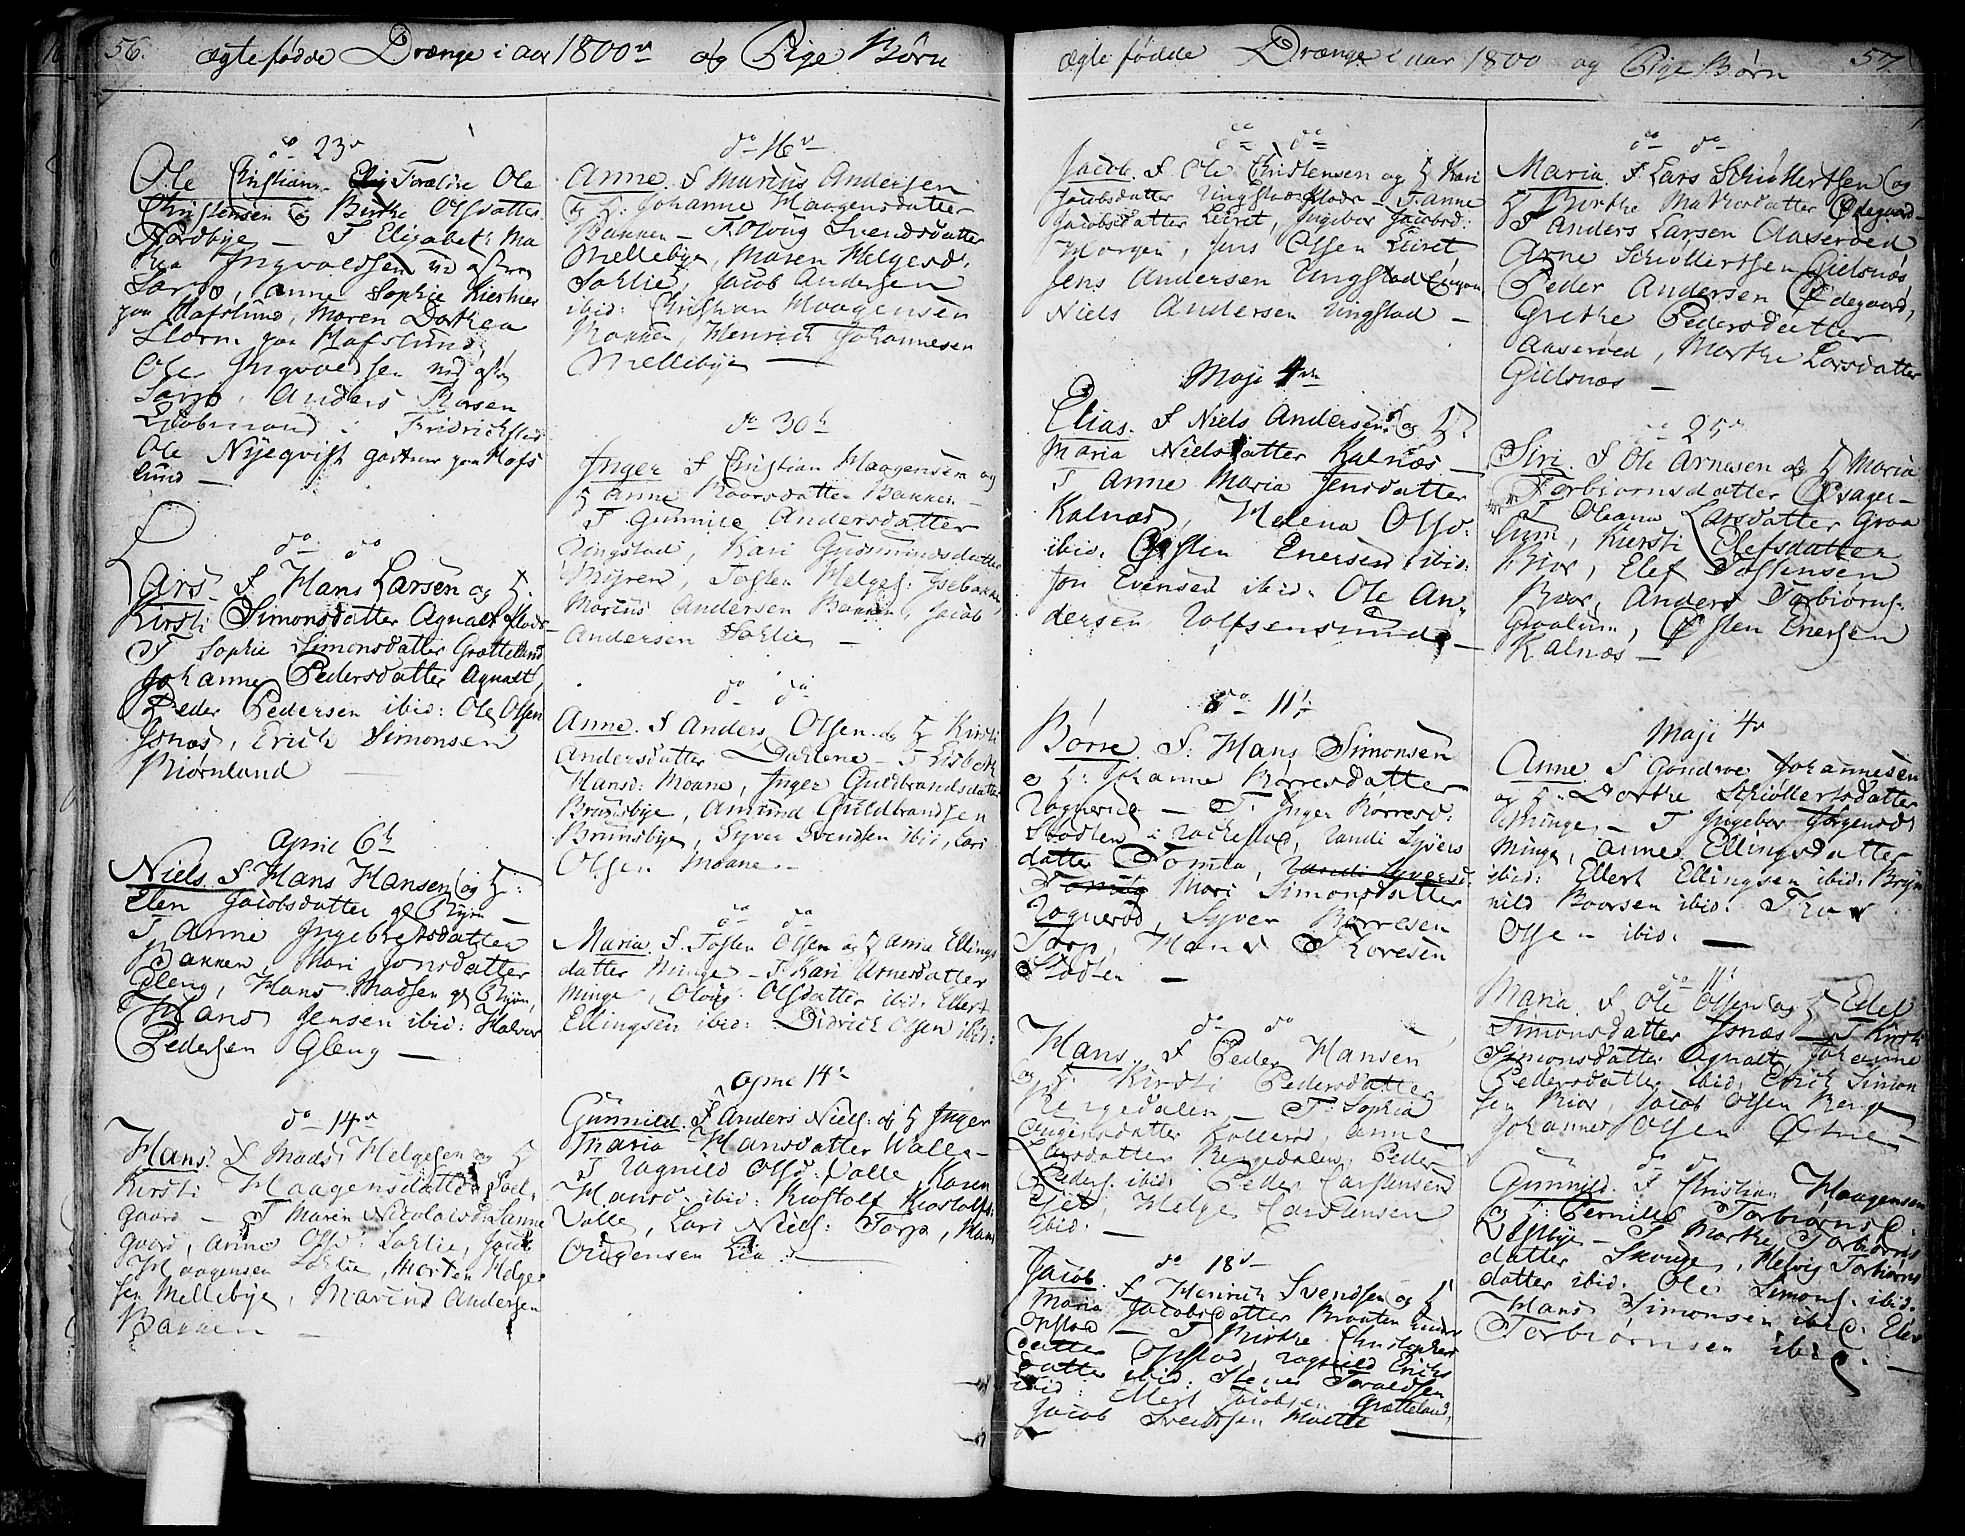 56.
ægte fødde Drænge i aar 1800 og Pige Børn
do 23
Ole Christian. Forældre Ole
Christensen og Birthe Olsdatter
Nordbye — F Elisabeth Ma
ria Ingvoldsen ved
Sarp, Anne Sophie Kierhus
paa Hafslund, Maren Dorthea
Storm paa Hafslund,
Ole Ingvoldsen ved
Sarp, Anders Thorsen
Kiøbmand i Fridrichstad
Ole Nyeqvist gartner paa Hafs
lund —
do do
Lars. F Hans Larsen og H.
Kirsti Simonsdatter Agnalt
F Sophie Simonsdatter Grætteland
Johanne Pedersdatter Agnalt,
Peder Pedersen ibid: Ole Olsen
Isnæs, Erich Simonsen
Biørnland
April 6
Niels F Hans Hansen og H:
Elen Jacobsdatter gl Byen —
F Anne Ingebretsdatter
Bakken Mari Jonsdatter
Gleng, Hans Madsen gl Byen,
Hans Jensen ibid: Halvor
Pedersen Gleng —
do 14
Hans F Mads Helgesen og H
Kirsti Haagensdatter Sol
gaard — F Maren Nicolaisdat
gaard, Anne Olsd: Sahlie, Jacob
Haagensen Sahlie, Morten Helge
sen Mellebye, Marius Andersen
Bakken —
do 16
Anne. F Marius Andersen
og H: Johanne Haagensdatter
Bakken — F Oloug Svendsdatter
Mellebye, Maren Helgesd.
Sahlie, Jacob Andersen
ibid: Christian Haagensen
Bakken, Henrich Johannesen
Mellebye —
do 30
Inger F Christian Haagensen og
H Anne Roarsdatter Bakken —
F Gunnild Andersdatter
Vingstad, Kari Gudmundsdatter
Myren, Tosten Helges: Isebakke,
Marius Andersen Bakken, Jacob
Andersen Sahlie —
do do
Anne. F Anders Olsen og H Kirsti
Andersdatter Dahlene — F Lisbeth
Hansd: Moane, Inger Guldbrandsdatter
Brunsbye, Amund Guldbrandsen
Brunsbye, Syver Svendsen ibid, Lars
Olsen Moane —
do do
Maria. F. Tosten Olsen og H Anne Ellings
datter Minge — F Kari Arnesdatter
Minge, Oloug Olsdatter ibid. Ellert
Ellingsen ibid: Didrich Olsen ibid:
April 14
Gunnild. F Anders Niels: og H Inger
Maria Hansdatter Walle —
F Ragnild Olsd: Valle, Karen
Hansd: ibid: Kiostolf Kiostolfs:
Valle, Lars Niels: Torp, Hans
Augensen Lia —
57.
ægte fødde Drænge i aar 1800 og Pige Børn
do do
Jacob. F Ole Christensen og H Kari
Jacobsdatter Ungstad — F Anne
Jacobsdatter Leiret, Ingebor Jacobsd:
Hvorgen, Jens Olsen Leiret,
Jens Andersen Ungstad
Niels Andersen Ungstad —
Maji 4
Elias. F Niels Andersen og H:
Maria Nielsdatter Kalnæs —
F Anne Maria Jensdatter
Kalnæs, Helena Olsd:
ibid. Østen Enersen ibid:
Jon Evensen ibid. Ole An
dersen Rolfsensund —
do 11
Børre F: Hans Simonsen
og H: Johanne Børresdatter
— F: Inger Børresd:
Stadsten i Rachestad, Randi Syvers
datter Tomta, Randi Syversd:
Tomta Mari Simonsdatter
Syver Børresen
Torp, Hans Thoresen
—
do do
Hans. F Peder Hansen
og H. Kirsti Pedersdatter
Bergedalen — F: Sophia
Augensdatter Kollerød Anne
Larsdatter Bergedalen, Peder
Peders: ibid: Peder Carstensen
Helge Carstensen
ibid: —
do 18
Jacob F Heinrich Svendsen og H
Maria Jacobsdatter Braaten under
Opstad — F Birthe Christopher
datter Opstad, Ragnild Erichs
datter ibid: Stener Toraldsen
ibid: Ellert Jacobsen Grætteland,
Jacob Svendsen Moette —
do do
Maria. F Lars Schiøllertsen og
H Birthe Mathisdatter Ødegaard —
F Anders Larsen Aaserøed
Arne Schiøllertsen Gielsnæs,
Peder Andersen Ødegaard,
Grethe Pedersdatter
Aaserøed, Marthe Larsdatter
Gielsnæs —
25
Siri. F Ole Arnesen og H Maria
Torbiørnsdatter Opsager —
F Oleana Larsdatter Graa
lum, Kiersti Elefsdatter
Bior, Elef Tostensen
Bior, Anders Torbiørns:
Graalum, Østen Enersen
Kalnæs —
Maji 4
Anne F Gondroe Johannesen
og H: Dorthe Schiøllertsdatter
Minge — F Ingebor Jørgensd
Minge, Anne Ellingsdatter
ibid: Ellert Ellingsen ibid: Bryn
nild Roarsen ibid: Truls
Olsen ibid: —
do 11
Maria. F Ole Olsen og H Edel
Simonsdatter Isnæs — F Kirsti
Simonsdatter Agnalt, Johanne
Pedersdatter ibid, Erich Simon
sen Bior, Jacob Olsen Berge
Johannes Olsen —
do do
Gunnild. F Christian Haagensen
og H: Pernille Torbiørnsd:
Visbye — F Marthe Torbiørns
datter Skouge, Helvig Torbiørns
datter ibid. Ole Simons: ibid.
Hans Simonsen ibid. Elev
Torbiørnsen ibid. —